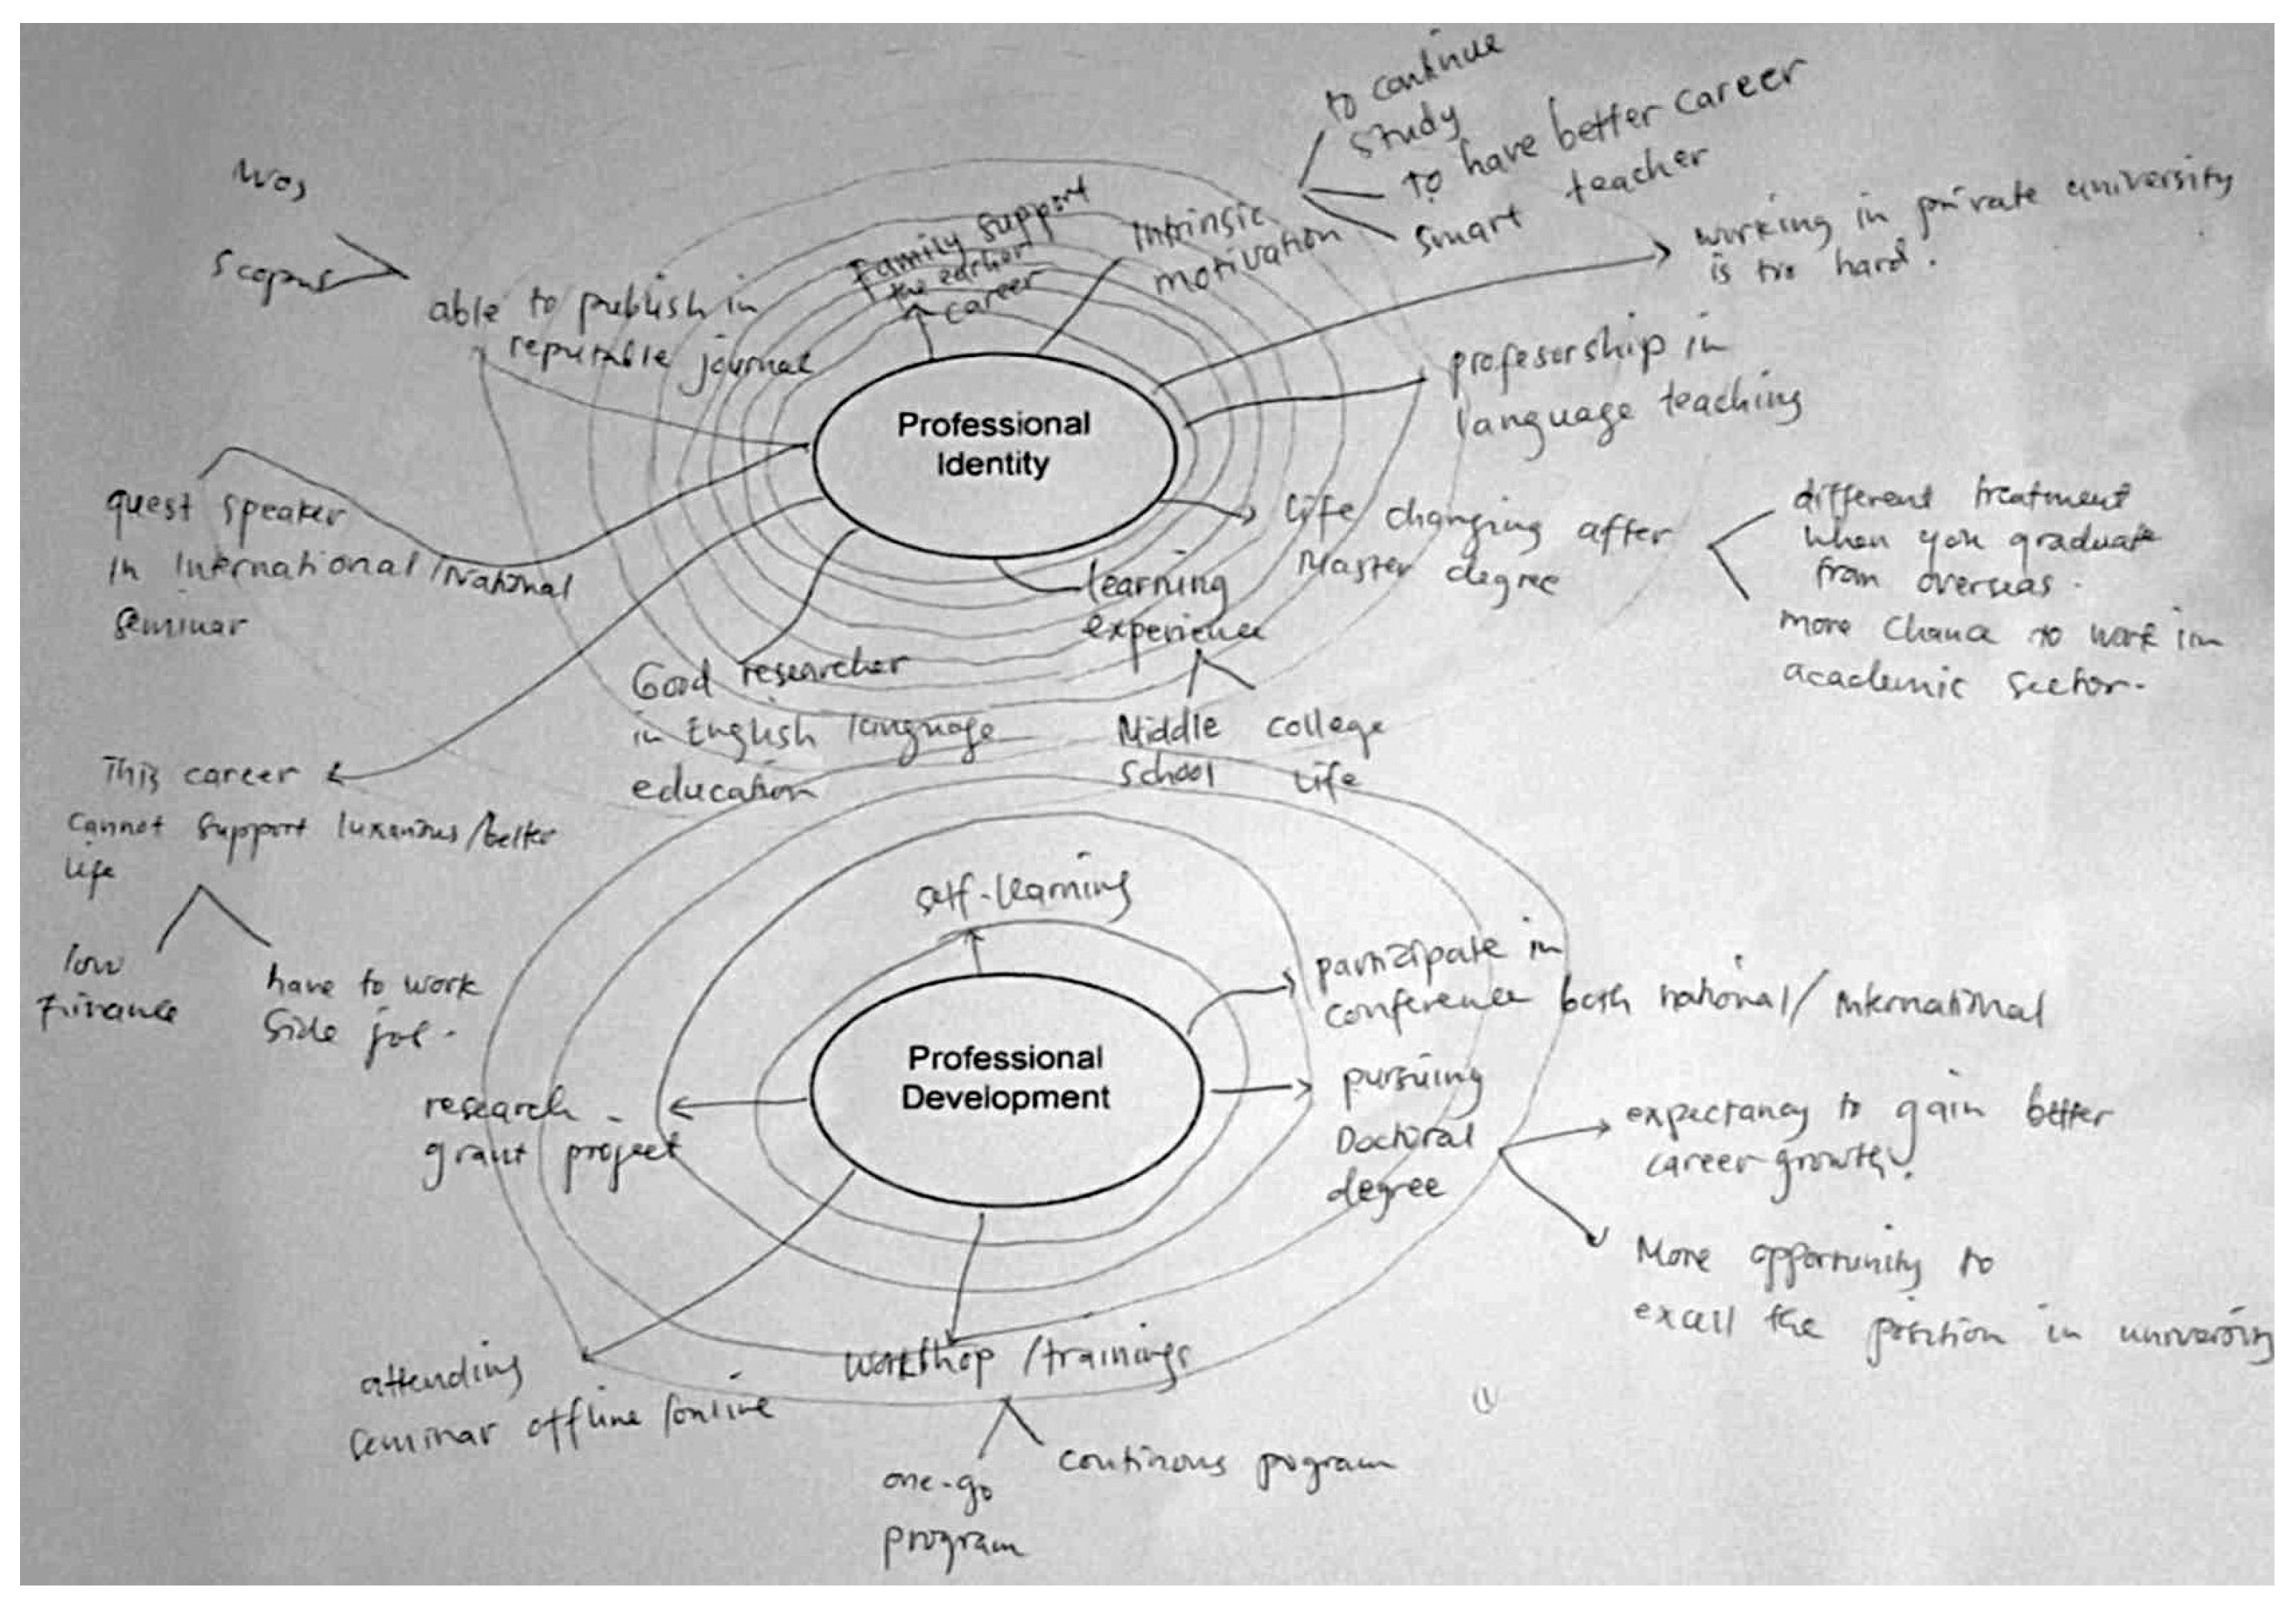 to continue
study
to have better career
smart teacher
Wos
Scopus
able to publish in
reputable journal
Family support
the earlier
career
Intrinsic
motivation
working in private university
is too hard.
profesorship in
language teaching
Professional
Identity
quest speaker
in International/National
seminar
life changing after
Master degree
different treatment
when you graduate
from overseas.
more chance to work in
academic sector.
learning
experience
Middle
school
college
life
Good researcher
in English language
education
This career
cannot support luxurious/better
life
low
finance
have to work
side job.
self-learning
participate in
conference both national/International
Professional
Development
research
grant project
pursuing
Doctoral
degree
expectancy to gain better
career growth.
More opportunity to
excell the position in university
attending
seminar offline/online
workshop/trainings
one-go
program
continous program